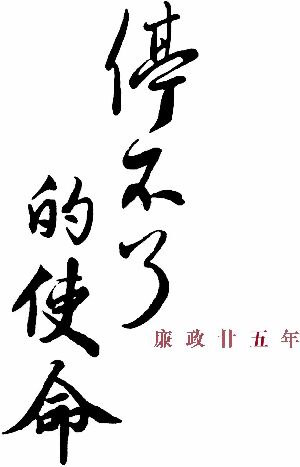 停不了
的使命
廉政廿五年